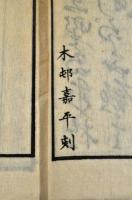 木邨嘉平刻